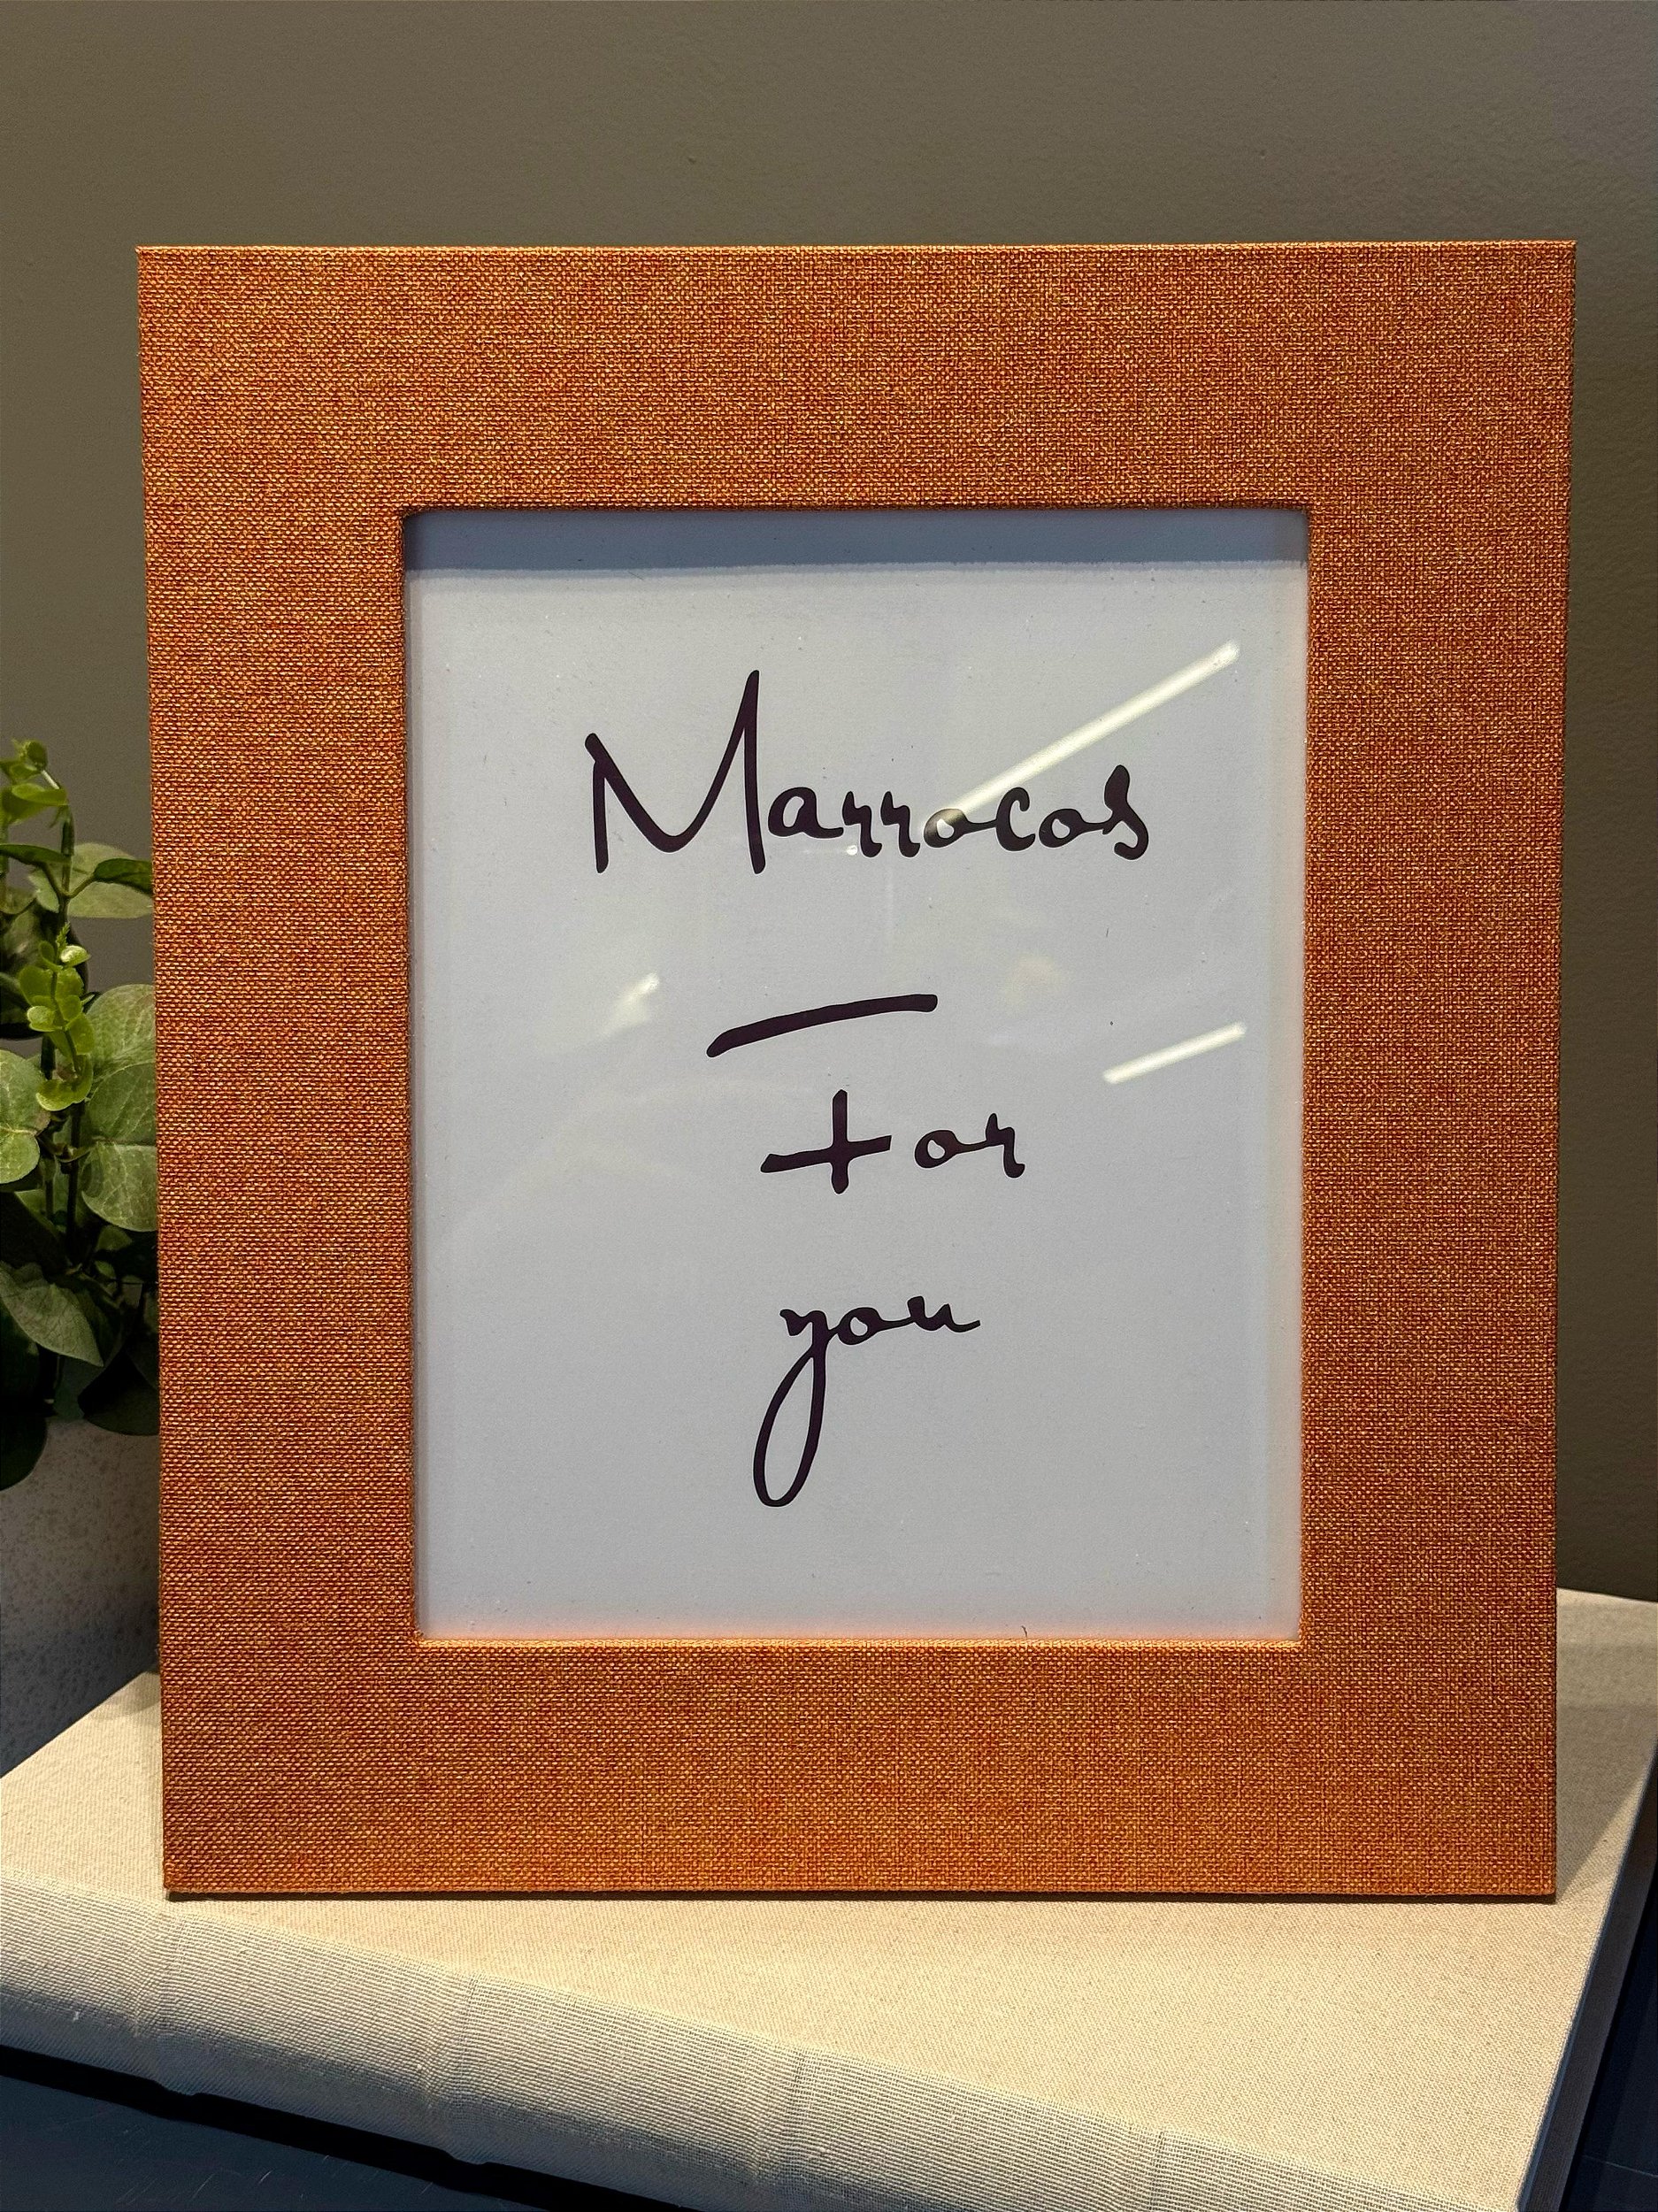 Marrocos
For
you